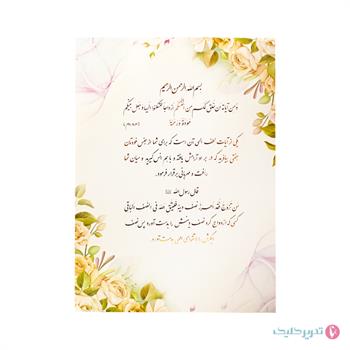 بسم الله الرحمن الرحیم
و من آیاته ان خلق لکم من انفسکم ازواجا لتسکنوا الیها و جعل بینکم
مودة و رحمة
یکی از آیات لطف الهی آن است که برای شما از جنس خودتان
جفتی بیافرید که در بر او آرامش یافته و با هم انس گیرید و میان شما
رافت و مهربانی برقرار فرمود.
قال رسول الله
من تزوج فقد احرز نصف دینه فلیتق الله فی النصف الباقی
کسی که ازدواج کند نصف دینش را بدست آورده پس نصف
دیگرش را با تقوای الهی بدست آورد.
تحریر کلیک